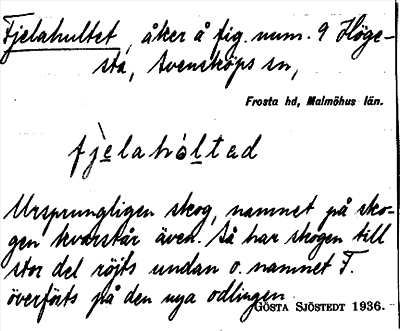 Fjelahultet, åker å fig. num. 9 Höge-
sta, Svensköps sn,
Frosta hd, Malmöhus län.
fjelahóltad
Ursprungligen skog, namnet på sko-
gen kvarstår även. Så har skogen till
stor del röjts undan o. namnet F.
överförts på den nya odlingen.
GÖSTA SJÖSTEDT 1936.